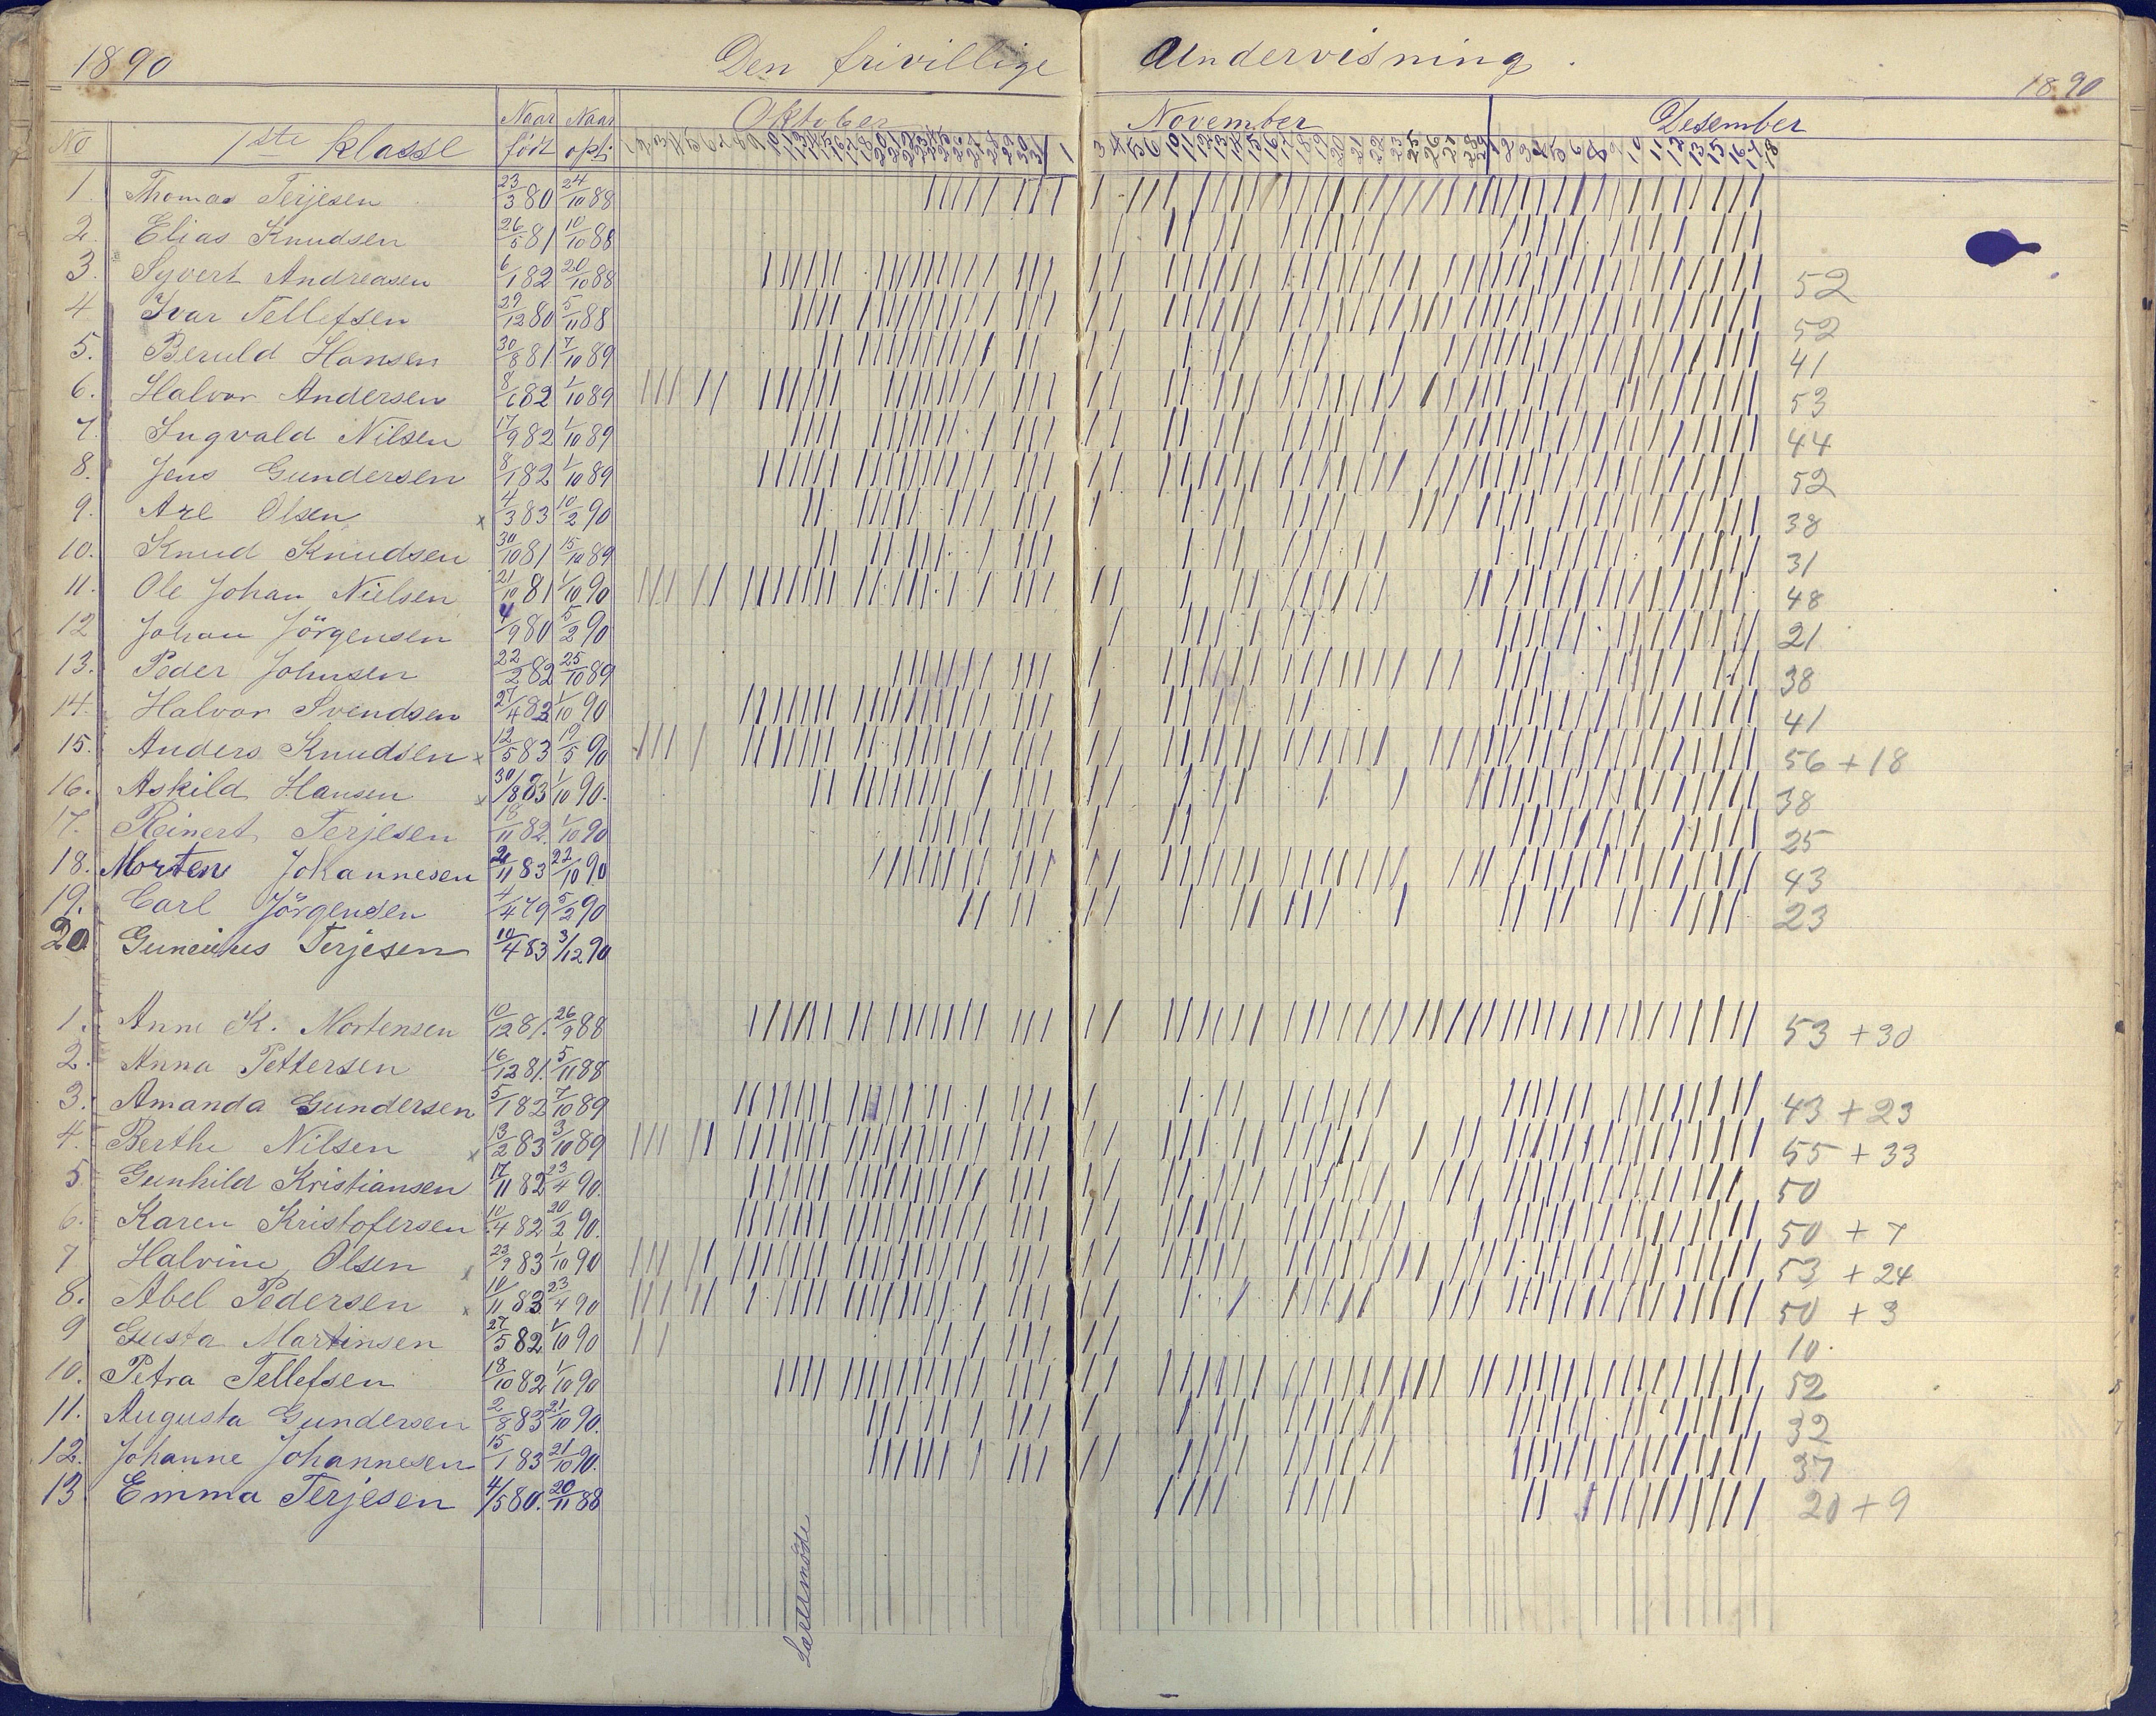 1890 Den frivillige Undervisning. 1890
Oktober November Desember
No 1ste Klasse Naar født Naar opt.
1. Thomas Terjesen 23/3 80 24/10 88
2. Elias Knudsen 26/5 81 10/10 88
3. Syvert Andreasen 6/1 82 20/10 88 52
4. Ivar Tellefsen 29/12 80 5/11 88 52
5. Beruld Hansen 30/8 81 7/10 89 41
6. Halvor Andersen 8/6 82 1/10 89 53
7. Ingvald Nilsen 17/9 82 1/10 89 44
8. Jens Gundersen 8/1 82 1/10 89 52
9. Are Olsen x 4/3 83 10/2 90 38
10. Knud Knudsen 30/10 81 15/10 89 31
11. Ole Johan Nielsen 21/10 81 1/10 90 48
12 Johan Jörgensen 4/9 80 5/2 90 21
13. Peder Johnsen 22/2 82 25/10 89 38
14. Halvor Svendsen 27/4 83 1/10 90 41
15. Anders Knudsen x 12/5 83 19/5 90 56 + 18
16. Askild Hansen x 30/8 83 1/10 90. 38
17. Reinert Terjesen 18/11 82. 1/10 90 25
18. Morten Johannesen 21/11 83 22/10 90 43
19. Carl Jörgensen 4/4 79 5/2 90 23
20 Terjesen 10/4 83 3/12 90
1. Anne K. Mortensen 10/12 81. 26/9 88 53 + 30
2. Anna Pettersen 16/12 81. 5/11 88
3. Amanda Gundersen 5/1 82 7/10 89 43 + 23
4. Berthe Nilsen x 13/2 83 3/10 89 55 + 33
5 Gunhild Kristiansen 17/11 82 23/4 90. 50
6. Karen Kristofersen 10/4 82 20/2 90. 50 + 7
7 Halvine Olsen x 23/9 83 1/10 90 53 + 24
8. Abel Pedersen x 10/11 83 23/4 90 50 + 3
9 Gusta Martinsen 27/5 82 1/10 90 10.
10. Petra Tellefsen 18/10 82 1/10 90 52
11. Augusta Gundersen 2/8 83 21/10 90. 32
12. Johanne Johannesen 15/1 83 21/10 90. 37
13 Emma Terjesen 4/5 80. 20/11 88 20 + 9